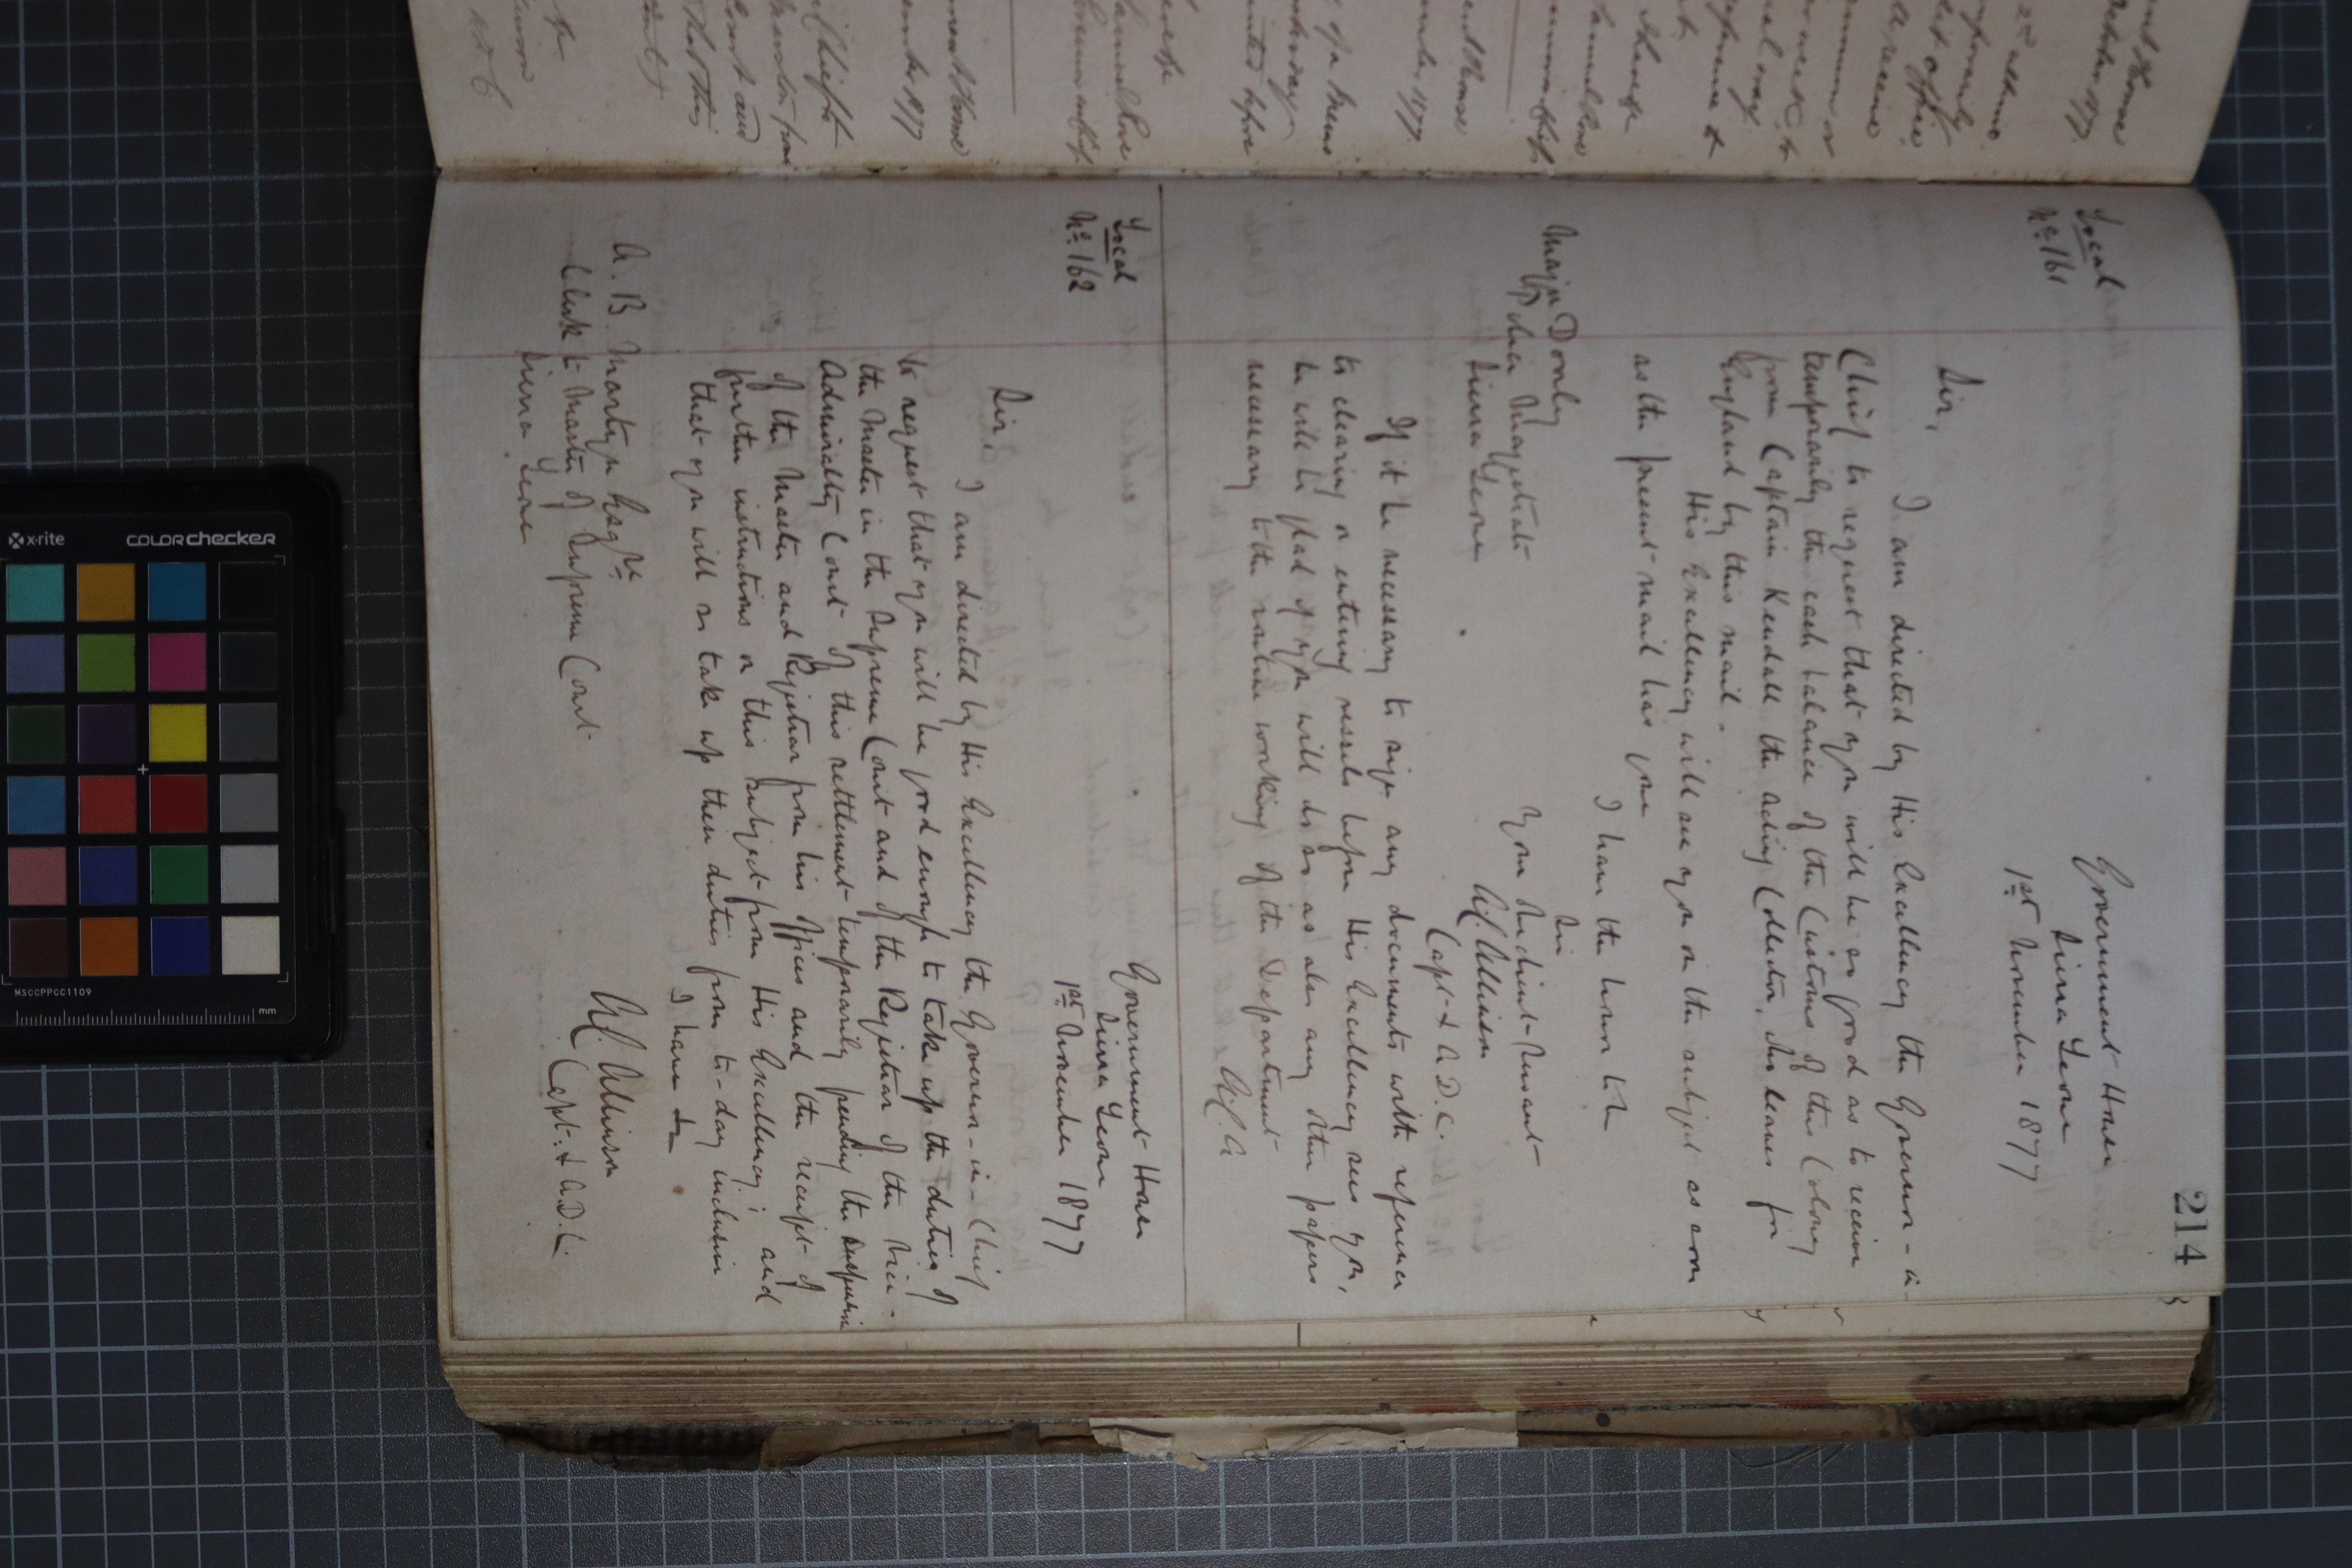 214
Local
No. 161
Government House
Sierra Leone
1st November 1877
Sir,
I am directed by His Excellency the Governor-in-
Chief to request that you will be so good as to receive
temporarily the cash balance of the Customs of this Colony
from Captain Kendall the acting Collector, who leaves for
England by this mail.
His Excellency will see you on the subject as soon
as the present mail has gone
I have the honor to be
Sir
Your Obedient Servant
Capt & A.D.C.
Major Donly
Police Magistrate
Sierra Leone
If it be necessary to sign any documents with reference
to clearing or entering vessels before His Excellency sees you,
he will be glad if you will do so as also any other papers
necessary to the routine working of the Department
Local
No. 162
Government House
Sierra Leone
1st November 1877
Sir,
I am directed by His Excellency the Governor-in-Chief
to request that you will be good enough to take up the duties of
the Master in the Supreme Court and of the Registrar of the Vice-
Admiralty Court of this settlement temporarily pending the suspension
of the Master and Registrar from his offices and the receipt of
further instructions on this subject from His Excellency; and
that you will so take up these duties from to-day inclusive
I have &c
Capt: & A.D.C.
A. B. Martyn Esqre
Clerk to Master of Supreme Court
Sierra Leone
x-rite
colorchecker
MSCCPPCC1109
mm